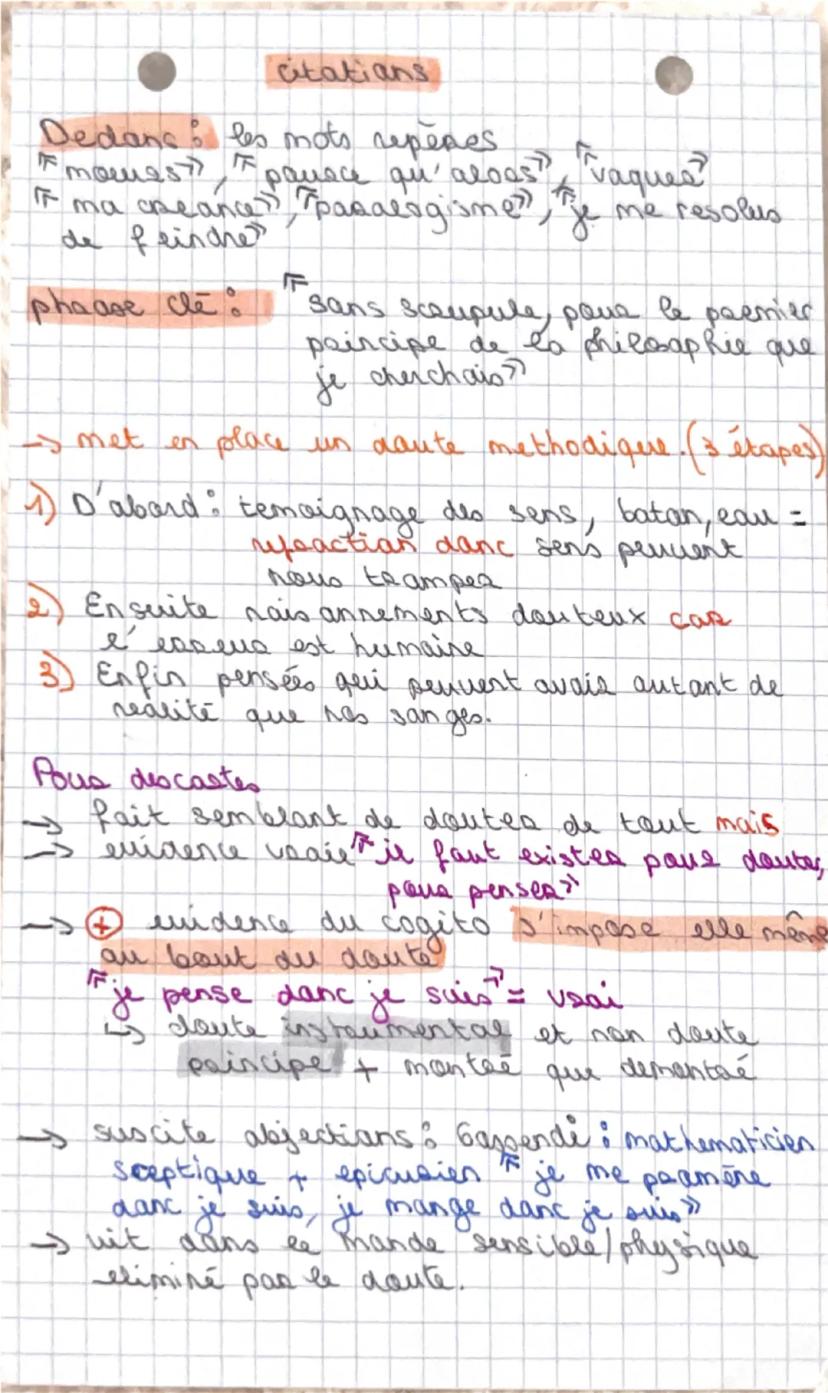 citations
Dedans : les mots repères
« moeurs », « parce qu'alors », « vaquer »
« ma créance », « paralogisme », « je me resolus
de feindre »
phrase clé : « sans scrupule, pour le premier
principe de la philosophie que
je cherchais »
→ met en place un doute methodique. (3 étapes)
1) D'abord : temoignage des sens, baton, eau =
refraction donc sens peuvent
nous tromper
2) Ensuite raisonnements douteux car
l'erreur est humaine
3) Enfin pensées qui peuvent avoir autant de
realité que nos songes.
Pour descartes
→ fait semblant de douter de tout mais
→ evidence vraie « il faut exister pour douter,
pour penser »
→ + evidence du cogito s'impose elle même
au bout du doute
« je pense donc je suis » = vrai
↳ doute instrumental et non doute
principe + montré que demontré
→ suscite objections : Gassendi : mathematicien
sceptique + epicurien « je me promène
donc je suis, je mange donc je suis »
→ vit dans le monde sensible/physique
eliminé par le doute.